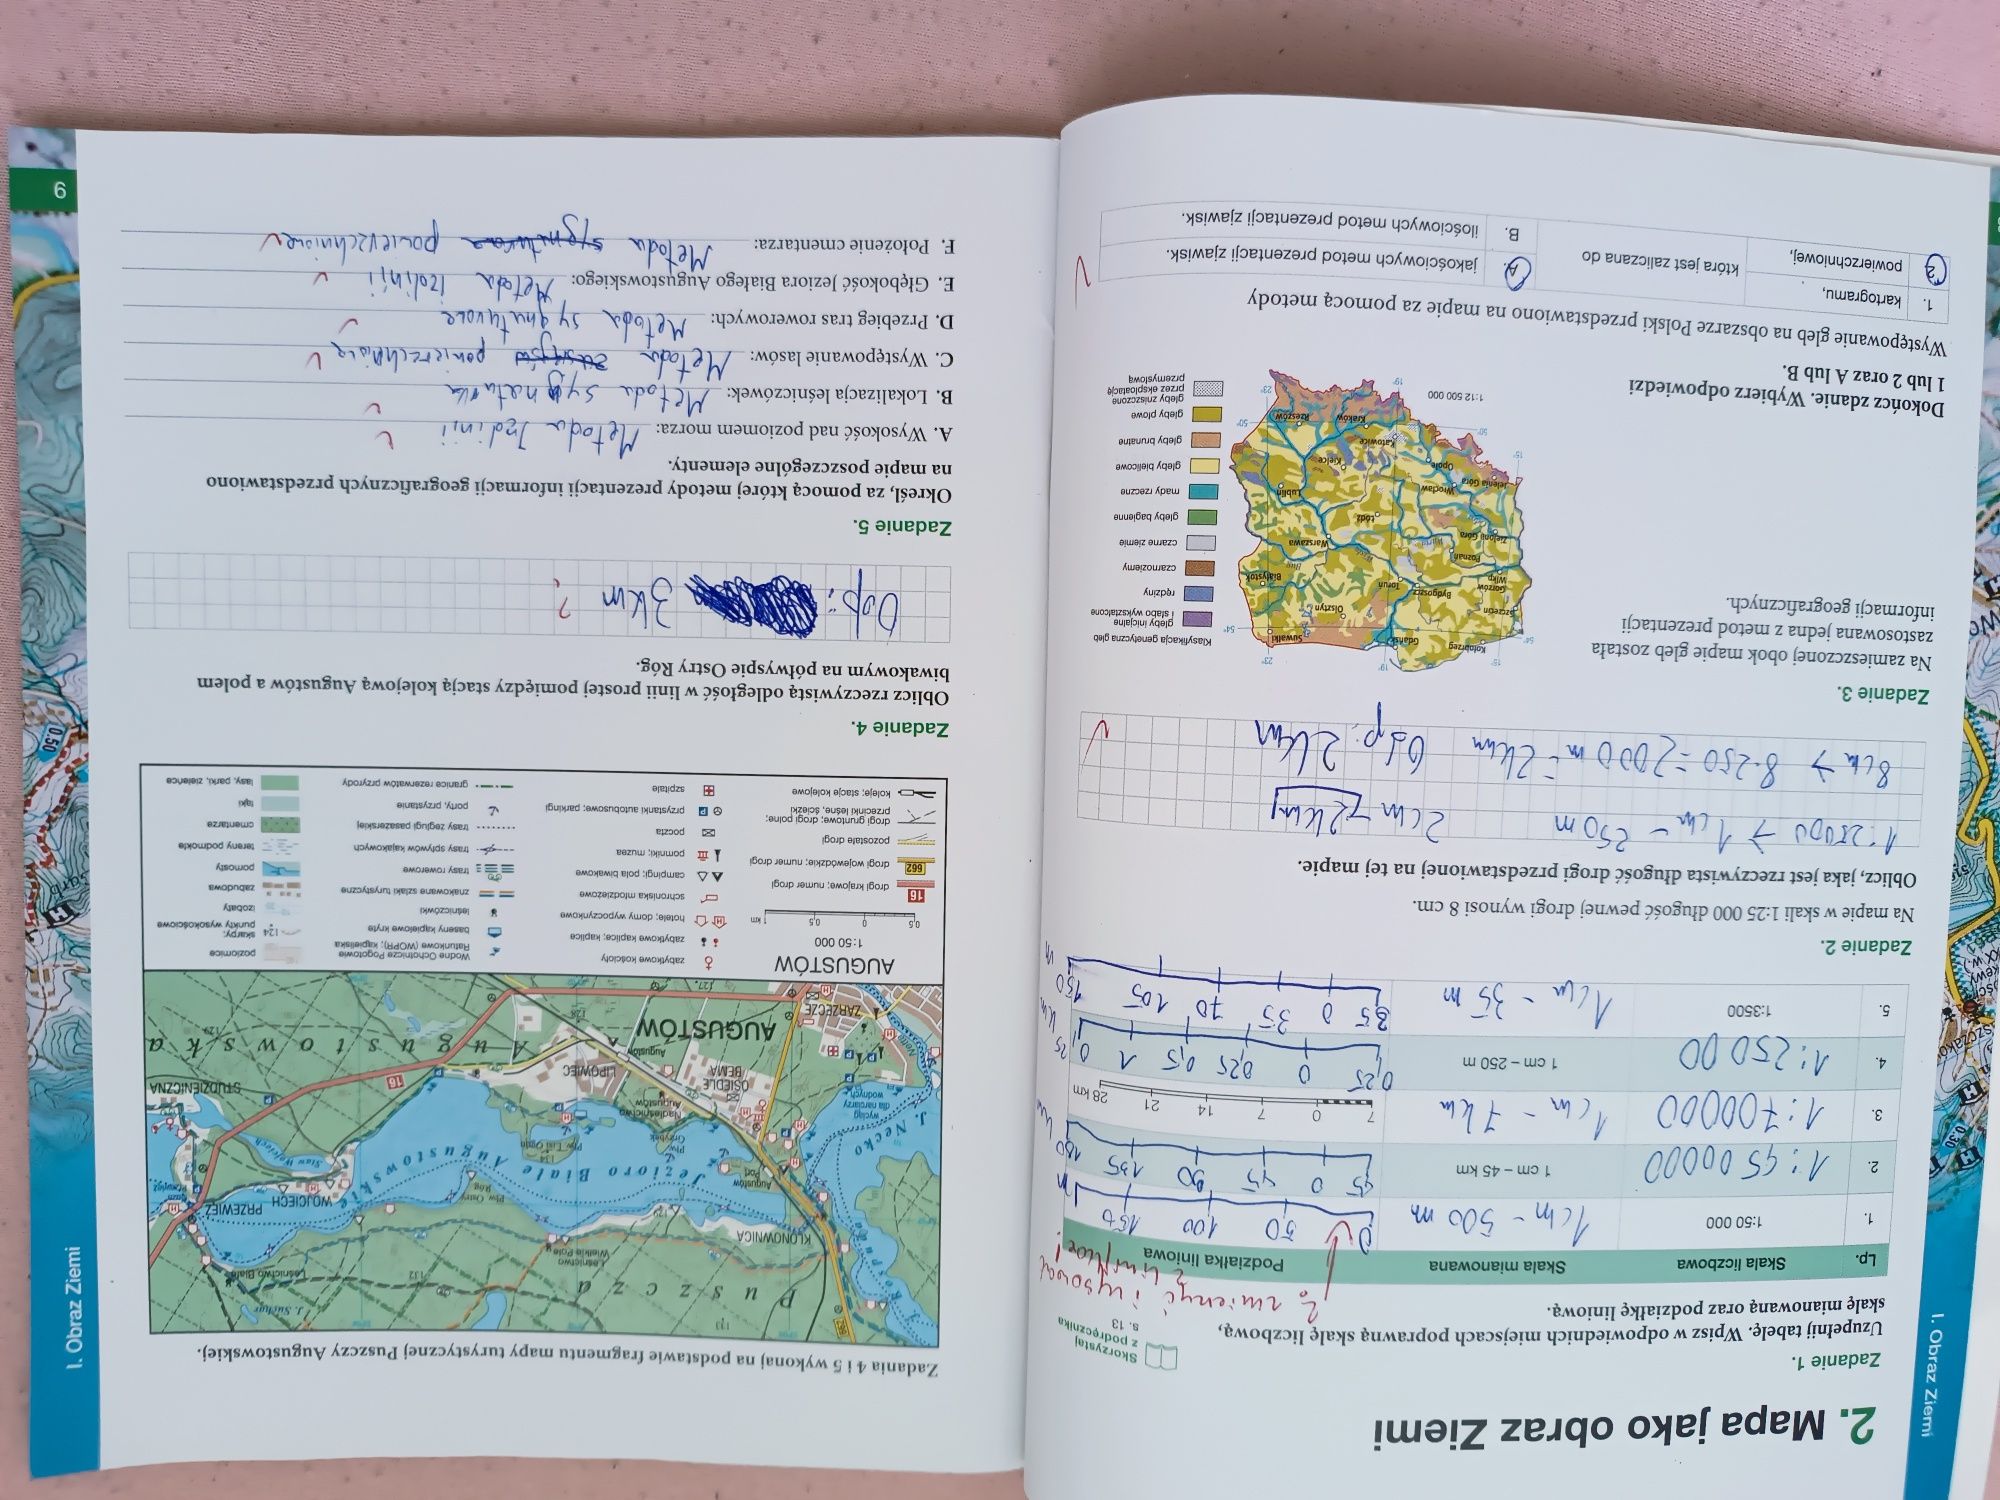 2. Mapa jako obraz Ziemi
Zadanie 1.
Uzupełnij tabelę. Wpisz w odpowiednich miejscach poprawną skalę liczbową,
skalę mianowaną oraz podziałkę liniową.
Skorzystaj
z podręcznika
s. 13
Z. zmierzyć i rysować
z linijką!
Lp. Skala liczbowa Skala mianowana Podziałka liniowa
1. 1:50 000 1 cm - 500 m 0 50 100 150 m
2. 1:4500000 1 cm – 45 km 45 0 45 90 135 180 km
3. 1:700000 1 cm - 7 km 7 0 7 14 21 28 km
4. 1:25000 1 cm – 250 m 0,25 0 0,25 0,5 1 0
5. 1:3500 1 cm - 35 m 35 0 35 70 105 150 m
Zadanie 2.
Na mapie w skali 1:25 000 długość pewnej drogi wynosi 8 cm.
Oblicz, jaka jest rzeczywista długość drogi przedstawionej na tej mapie.
1:25000 → 1 cm - 250 m 2 cm → 2 km
8 cm → 8·250 = 2000 m = 2 km Odp: 2 km
Zadanie 3.
Na zamieszczonej obok mapie gleb została
zastosowana jedna z metod prezentacji
informacji geograficznych.
Dokończ zdanie. Wybierz odpowiedzi
1 lub 2 oraz A lub B.
Klasyfikacja genetyczna gleb
gleby inicjalne
i słabo wykształcone
rędziny
czarnoziemy
czarne ziemie
gleby bagienne
mady rzeczne
gleby bielicowe
gleby brunatne
gleby płowe
gleby zniszczone
przez eksploatację
przemysłową
15° 19° 23°
54° 54°
Kołobrzeg Gdańsk Suwałki
Szczecin Olsztyn
Gorzów Wlkp. Bydgoszcz Toruń Białystok
Poznań Warta Wisła Bug Warszawa
Zielona Góra Łódź
Wrocław Lublin
Jelenia Góra Opole Kielce
Katowice Kraków Rzeszów
15° 50° 50°
19° 23°
1:12 500 000
Występowanie gleb na obszarze Polski przedstawiono na mapie za pomocą metody
1. kartogramu, która jest zaliczana do A. jakościowych metod prezentacji zjawisk.
2. powierzchniowej, B. ilościowych metod prezentacji zjawisk.
I. Obraz Ziemi
Zadania 4 i 5 wykonaj na podstawie fragmentu mapy turystycznej Puszczy Augustowskiej.
Puszcza
Augustowska
J. Rospuda
133
132
J. Suchar
Leśnictwo Białe
Leśnictwo
Wielkie Pole
KLONOWNICA
Płw. Ostry Róg
PRZEWIĘŹ
WOJCIECH
Staw Wojciech
STUDZIENICZNA
Jezioro Białe Augustowskie
J. Necko
wyciąg
dla narciarzy
wodnych
Augustów
Port
Płw. Grzybek
Płw. Lisi Ogon
134
Nadleśnictwo
Augustów
OSIEDLE
BEMA
LIPOWIEC
Augustów
AUGUSTÓW
ZARZECZE
Netta
16
129
128
127
AUGUSTÓW
1:50 000
0.5 0 0.5 1 km
16 drogi krajowe; numer drogi
662 drogi wojewódzkie; numer drogi
pozostałe drogi
drogi gruntowe; drogi polne;
przecinki leśne, ścieżki
koleje; stacje kolejowe
zabytkowe kościoły
zabytkowe kaplice; kaplice
hotele; domy wypoczynkowe
schroniska młodzieżowe
campingi; pola biwakowe
pomniki; muzea
poczta
przystanki autobusowe; parkingi
szpitale
Wodne Ochotnicze Pogotowie
Ratunkowe (WOPR); kąpieliska
baseny kąpielowe kryte
leśniczówki
znakowane szlaki turystyczne
trasy rowerowe
trasy spływów kajakowych
trasy żeglugi pasażerskiej
porty, przystanie
granice rezerwatów przyrody
poziomice
124 skarpy;
punkty wysokościowe
izobaty
zabudowa
pomosty
tereny podmokłe
cmentarze
łąki
lasy, parki, zieleńce
Zadanie 4.
Oblicz rzeczywistą odległość w linii prostej pomiędzy stacją kolejową Augustów a polem
biwakowym na półwyspie Ostry Róg.
Odp: 3 km ?
Zadanie 5.
Określ, za pomocą której metody prezentacji informacji geograficznych przedstawiono
na mapie poszczególne elementy.
A. Wysokość nad poziomem morza: Metoda Izolinii
B. Lokalizacja leśniczówek: Metoda sygnaturowa
C. Występowanie lasów: Metoda powierzchniowa
D. Przebieg tras rowerowych: Metoda sygnaturowa
E. Głębokość Jeziora Białego Augustowskiego: Metoda Izolinii
F. Położenie cmentarza: Metoda sygnaturowa powierzchniowa
9
I. Obraz Ziemi